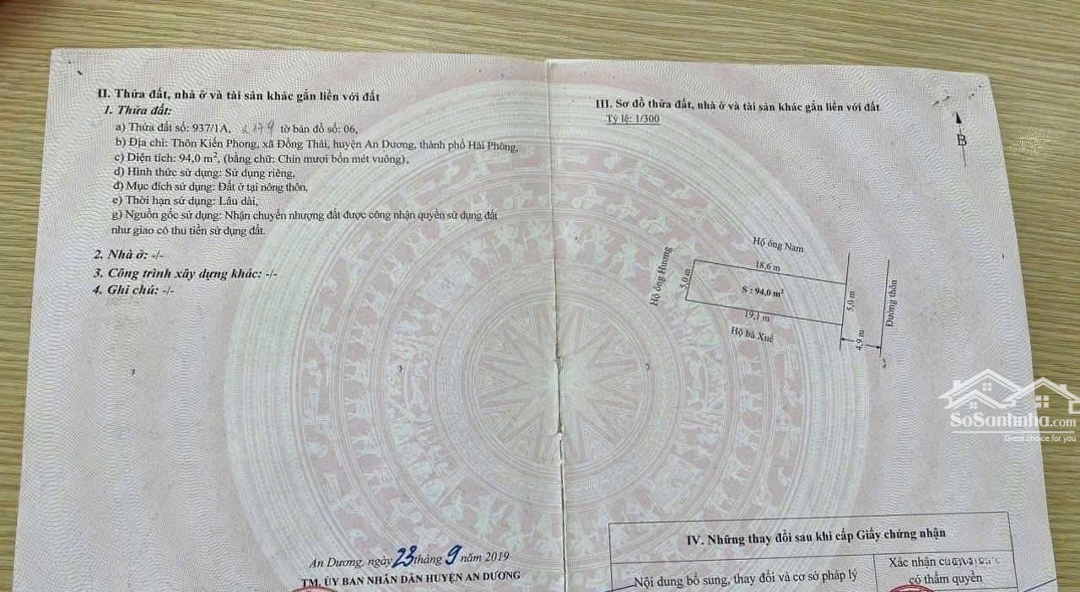 II. Thửa đất, nhà ở và tài sản khác gắn liền với đất
1. Thửa đất:
a) Thửa đất số: 937/1A, tờ bản đồ số: 06,
b) Địa chỉ: Thôn Kiến Phong, xã Đồng Thái, huyện An Dương, thành phố Hải Phòng,
c) Diện tích: 94,0 m², (bằng chữ: Chín mươi bốn mét vuông),
d) Hình thức sử dụng: Sử dụng riêng,
đ) Mục đích sử dụng: Đất ở tại nông thôn,
e) Thời hạn sử dụng: Lâu dài,
g) Nguồn gốc sử dụng: Nhận chuyển nhượng đất được công nhận quyền sử dụng đất
như giao có thu tiền sử dụng đất.
2. Nhà ở: -/-
3. Công trình xây dựng khác: -/-
4. Ghi chú: -/-
An Dương, ngày 23 tháng 9 năm 2019
TM. ỦY BAN NHÂN DÂN HUYỆN AN DƯƠNG
III. Sơ đồ thửa đất, nhà ở và tài sản khác gắn liền với đất
Tỷ lệ: 1/300
B
Hộ ông Nam
18,6 m
Hộ ông Hương
5,0 m
S : 94,0 m²
5,0 m
Đường thôn
19,1 m
Hộ bà Xuê
4,9 m
SoSanhnha.com
Great choice for you
IV. Những thay đổi sau khi cấp Giấy chứng nhận
Nội dung bổ sung, thay đổi và cơ sở pháp lý
Xác nhận của
có thẩm quyền